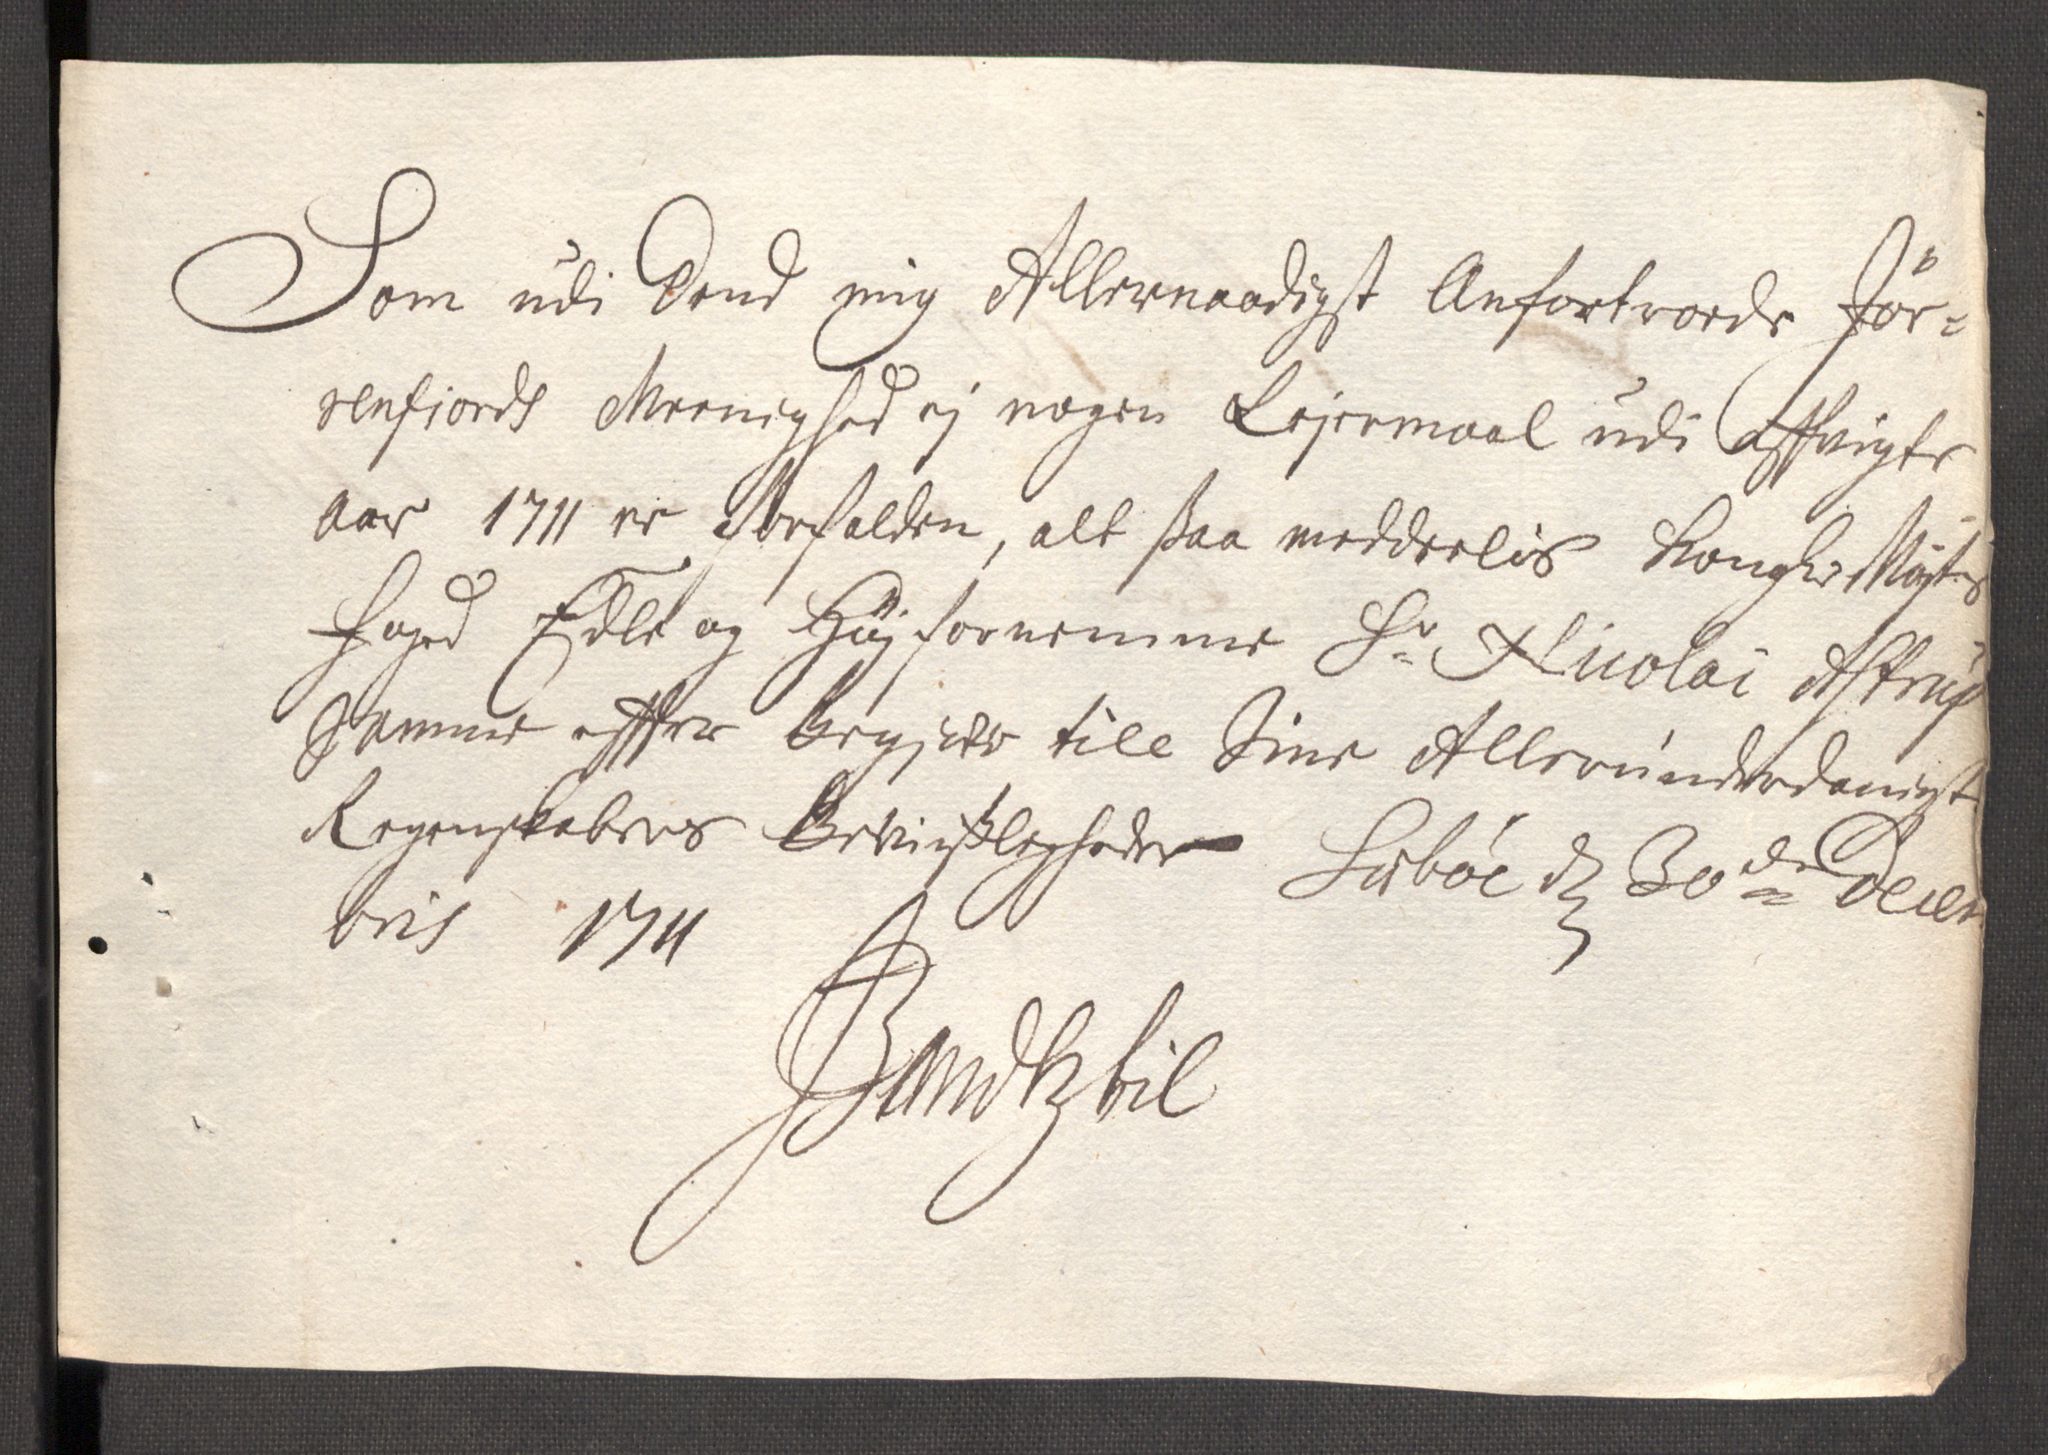 Som udi dend mig Allernaadigst Anfortroede Jör=
renfiords Meenighed ej nogen Lejermaal udi affvigte
aar 1711 er forfalden, alt ßaa meddeelis Kongl: Mayts
foged Edle og Høyfornemme Sr. Nicolai Astrup
samme effter begjær till Sine Allerunderdanigst
Regenskabers bevißligheder Sørböe d 30de Decem
bris 1711